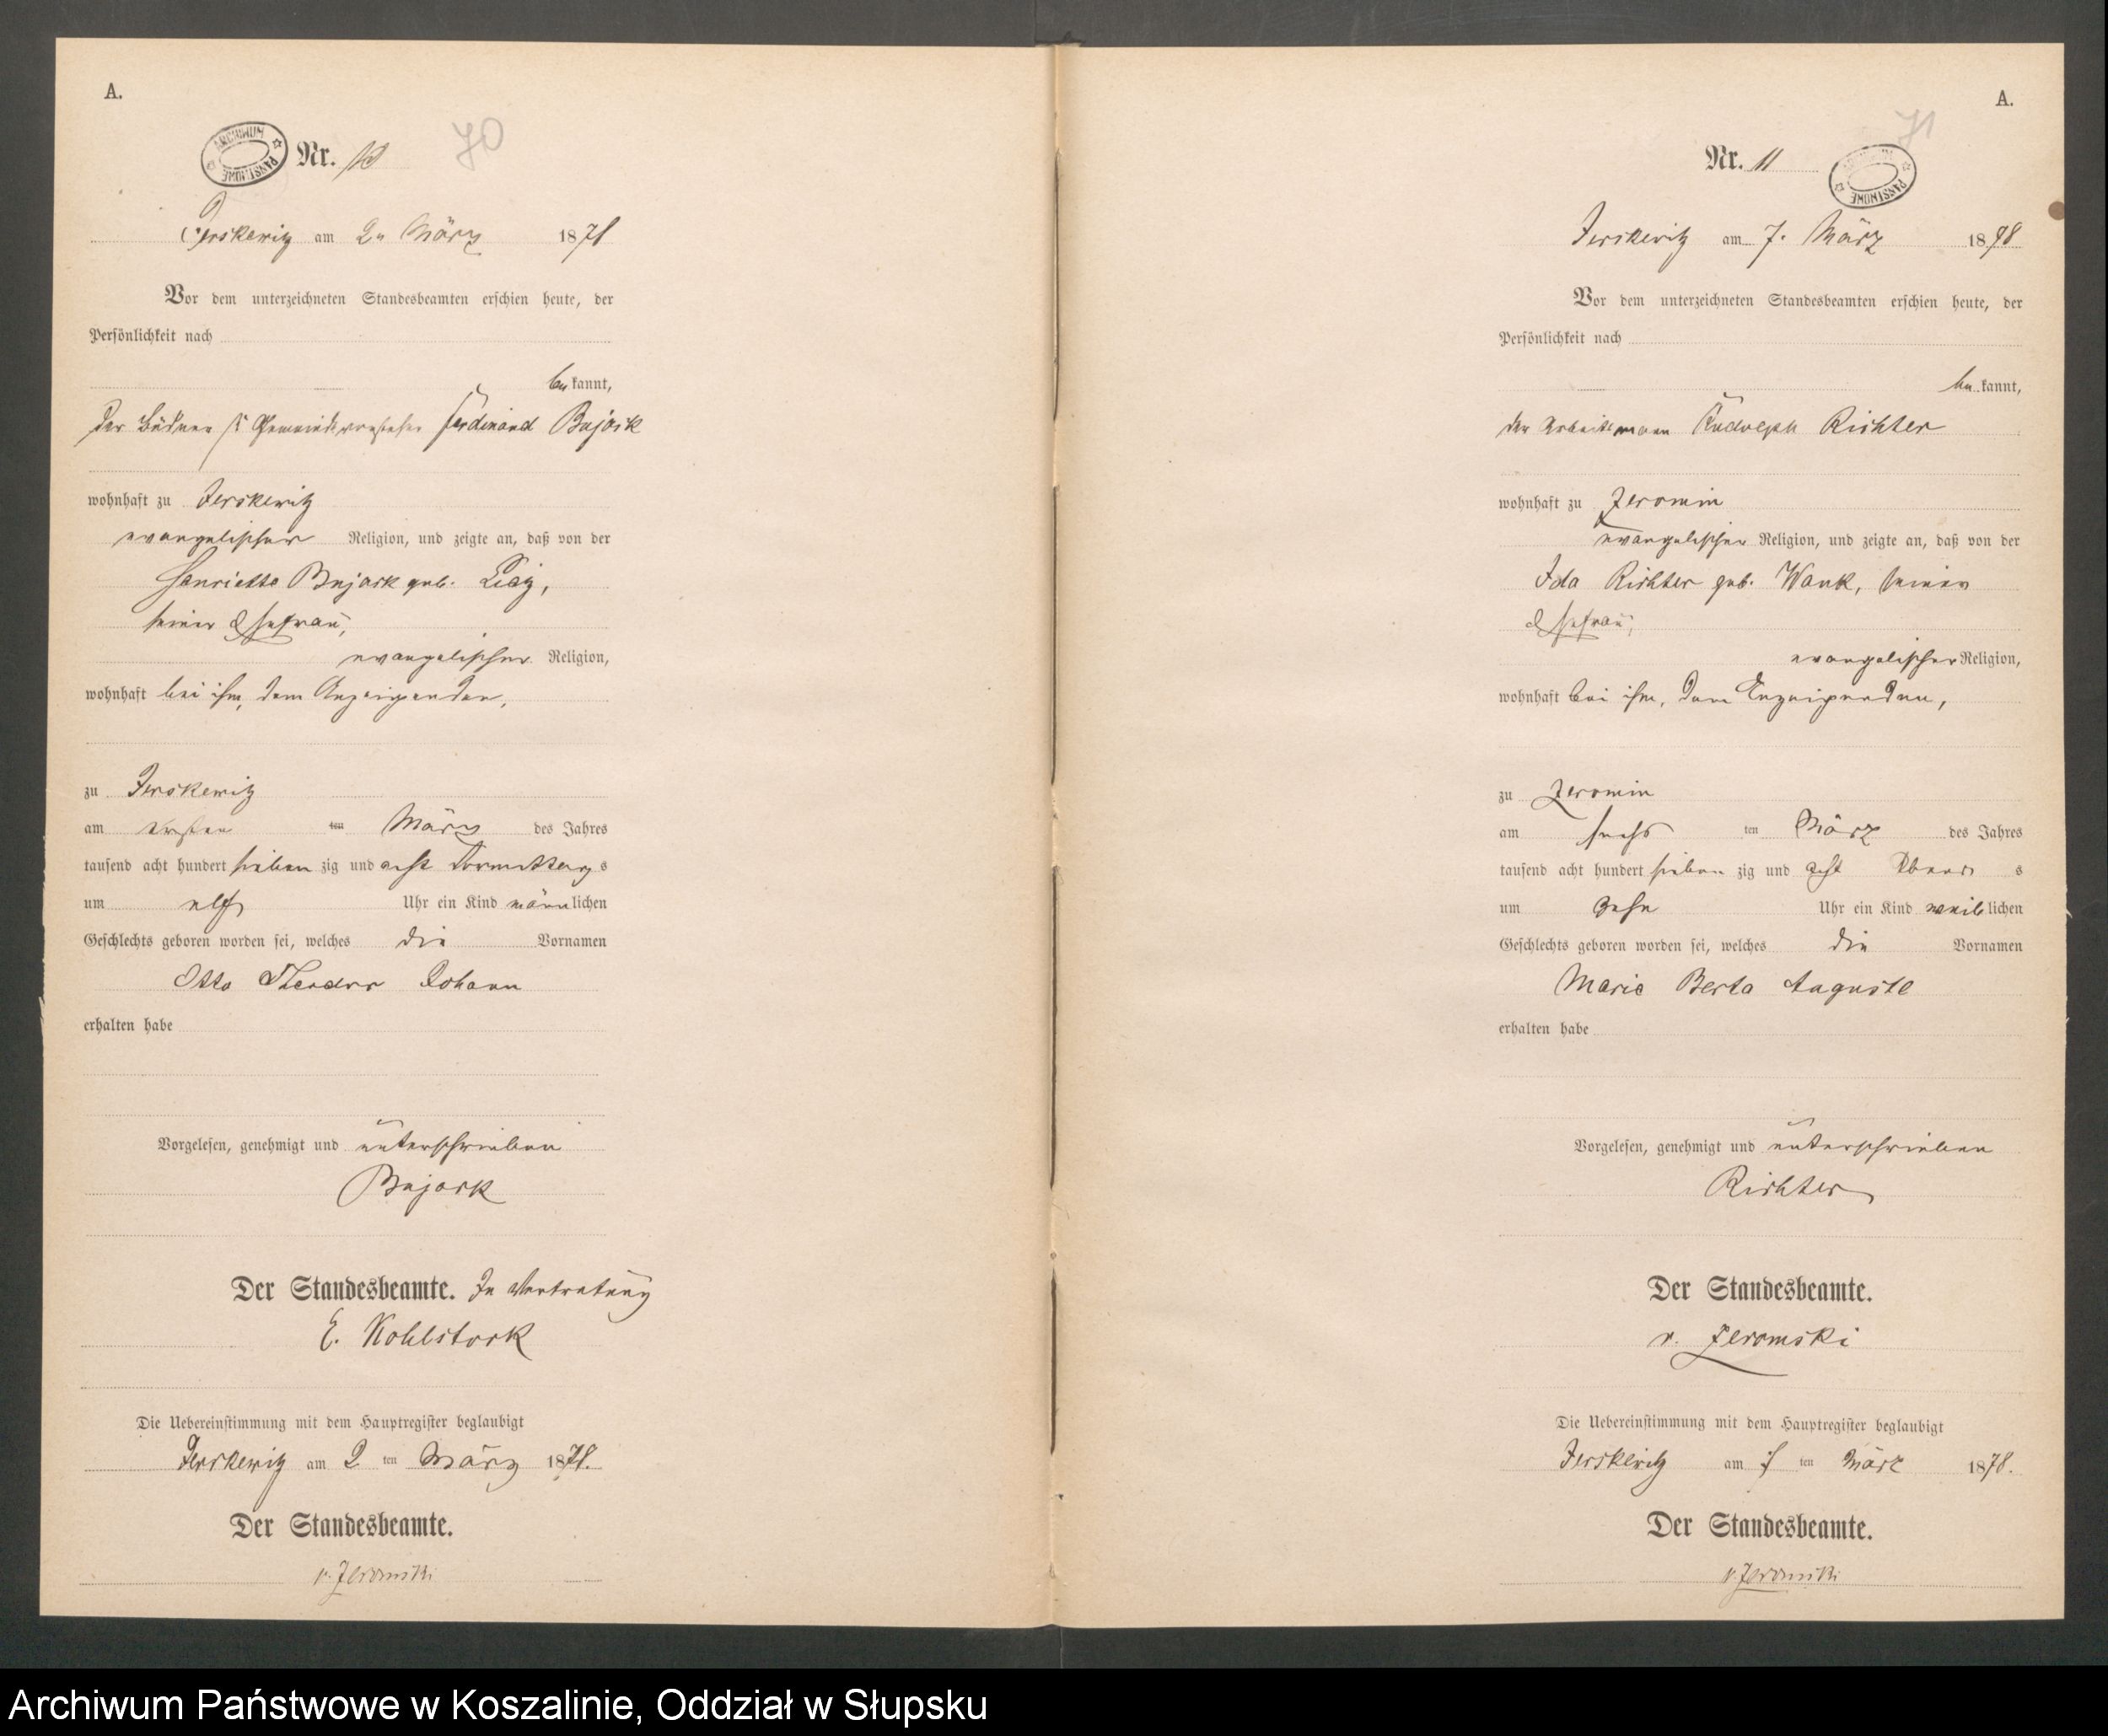 A.
ARCHIWUM PAŃSTWOWE
Nr. 10
70
Jerskewitz am 2ten März 1878
Vor dem unterzeichneten Standesbeamten erschien heute, der
Persönlichkeit nach
bekannt,
der Büdner & Gemeindevorsteher Ferdinand Bujack
wohnhaft zu Jerskewitz
evangelischer Religion, und zeigte an, daß von der
Henriette Bujack geb.
seiner Ehefrau,
evangelischer Religion,
wohnhaft bei ihm, dem Anzeigenden,
zu Jerskewitz
am ersten ten März des Jahres
tausend acht hundert sieben zig und acht Vormittags
um elf Uhr ein Kind männlichen
Geschlechts geboren worden sei, welches die Vornamen
Otto Theodor Johann
erhalten habe
Vorgelesen, genehmigt und unterschrieben
Bujack
Der Standesbeamte. In Vertretung
E. Kohlstock
Die Uebereinstimmung mit dem Hauptregister beglaubigt
Jerskewitz am 2 ten März 1878.
Der Standesbeamte.
v. Zeromski
A.
71
Nr. 11
ARCHIWUM PAŃSTWOWE
Jerskewitz am 7. März 1878
Vor dem unterzeichneten Standesbeamten erschien heute, der
Persönlichkeit nach
bekannt,
der Arbeitsmann Rudolph Richter
wohnhaft zu Zeromin
evangelischer Religion, und zeigte an, daß von der
Ida Richter geb. Wank, seiner
Ehefrau,
evangelischer Religion,
wohnhaft bei ihm, dem Anzeigenden,
zu Zeromin
am sechs ten März des Jahres
tausend acht hundert sieben zig und acht Abends
um zehn Uhr ein Kind weiblichen
Geschlechts geboren worden sei, welches die Vornamen
Marie Berta Auguste
erhalten habe
Vorgelesen, genehmigt und unterschrieben
Richter
Der Standesbeamte.
v. Zeromski
Die Uebereinstimmung mit dem Hauptregister beglaubigt
Jerskewitz am 7 ten März 1878.
Der Standesbeamte.
v. Zeromski
Archiwum Państwowe w Koszalinie, Oddział w Słupsku